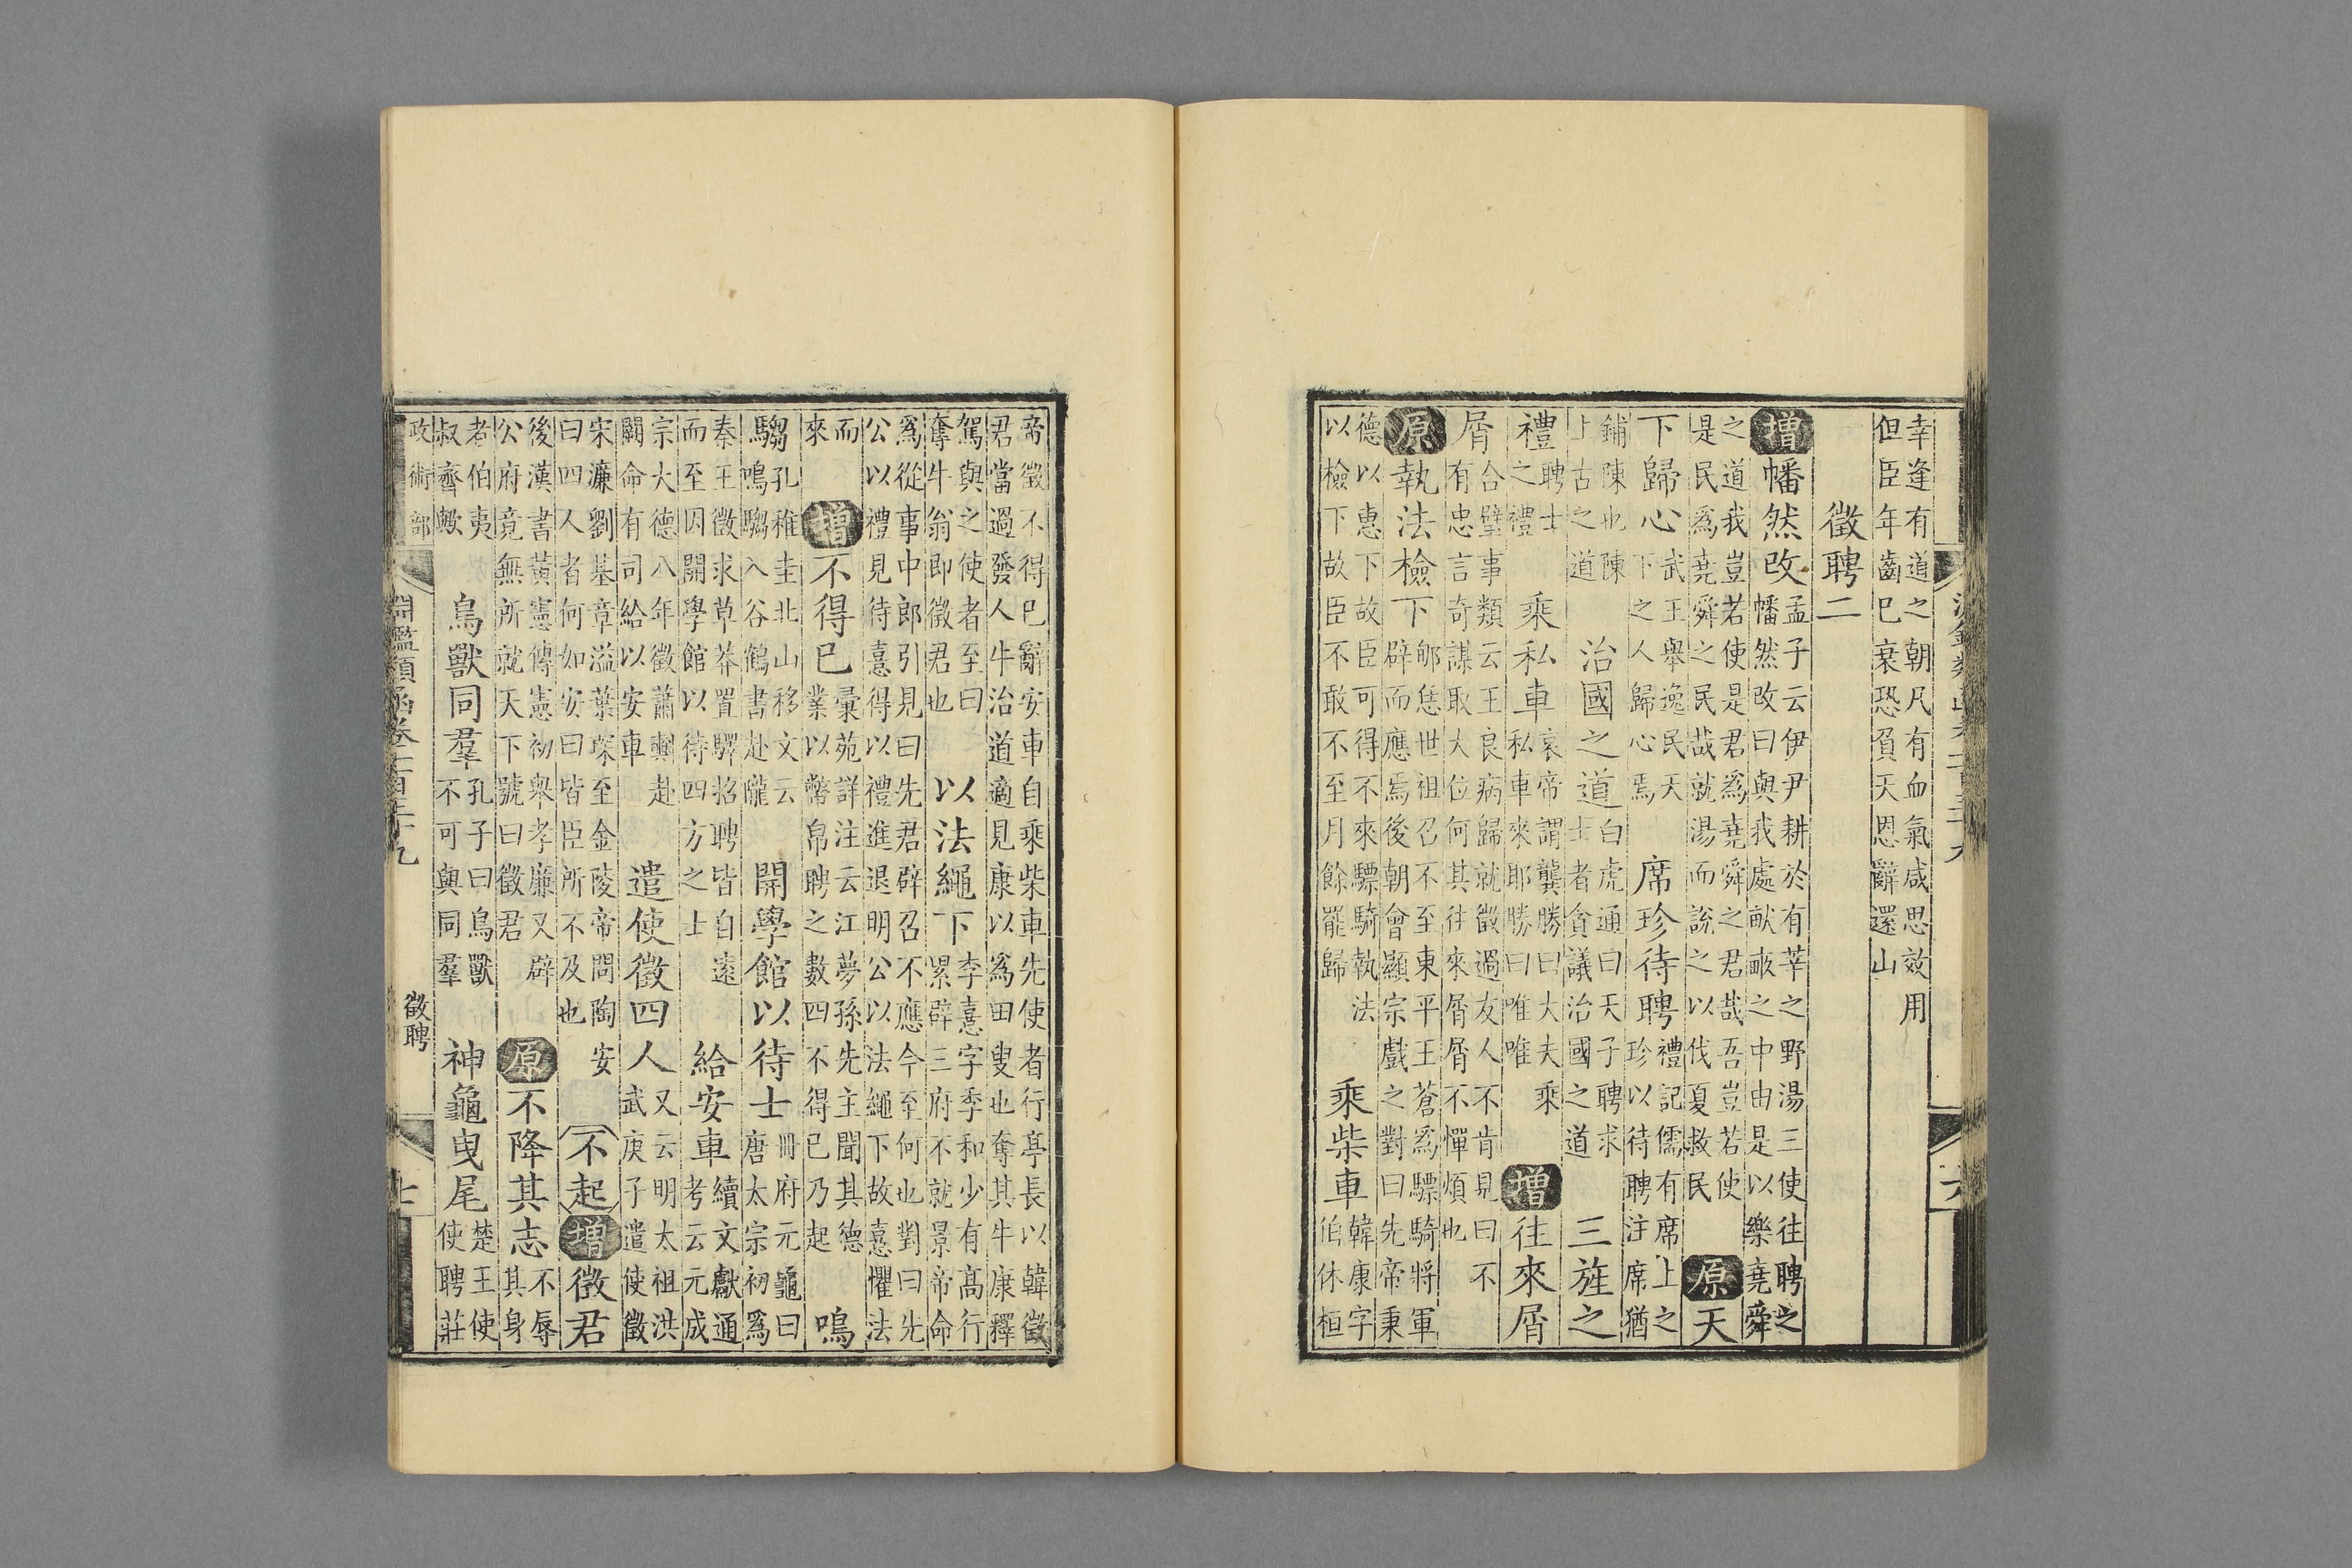 幸逢有道之朝凡有血氣咸思效用
但臣年齒已衰恐負天恩辭還山
徵聘二
增幡然改孟子云伊尹耕於有莘之野湯三使往聘之
幡然改曰與我處畎畝之中由是以樂堯舜
之道我豈若使是君爲堯舜之君哉吾豈若使
是民爲堯舜之民哉就湯而說之以伐夏救民原天
下歸心武王舉逸民天下之人歸心焉席珍待聘禮記儒有席上之珍以待聘注席猶
鋪陳也陳上古之道治國之道白虎通曰天子聘求士者貪議治國之道三旌之
禮聘士之禮乘私車哀帝謂龔勝曰大夫乘私車來耶勝曰唯唯增往來屑
屑合璧事類云王良病歸就徵過友人不肯見曰不
有忠言奇謀取大位何其往來屑屑不憚煩也
原執法檢下郇恁世祖召不至東平王蒼爲驃騎將軍
辟而應焉後朝會顯宗戲之對曰先帝秉
德以惠下故臣可得不來驃騎執法
以檢下故臣不敢不至月餘罷歸乘柴車韓康字伯休桓
帝徵不得已辭安車自乘柴車先使者行亭長以韓徵
君當過發人牛治道適見康以爲田叟也奪其牛康釋
駕與之使者至曰奪牛翁即徵君也以法繩下李憙字季和少有高行累辟三府不就景帝命
爲從事中郎引見曰先君辟召不應今至何也對曰先
公以禮見待憙得以禮進退明公以法繩下故憙懼法
而來增不得已彙苑詳注云江夢孫先主聞其德業以幣帛聘之數四不得已乃起鳴
騶孔稚圭北山移文云鳴騶入谷鶴書赴隴開學館以待士冊府元龜曰唐太宗初爲
秦王徵求草莽置驛招聘皆自遠而至因開學館以待四方之士給安車續文獻通考云元成
宗大德八年徵蕭㪺赴闕命有司給以安車遣使徵四人又云明太祖洪武庚子遣使徵
宋濂劉基章溢葉琛至金陵帝問陶安曰四人者何如安曰皆臣所不及也不起增徵君
後漢書黃憲傳憲初舉孝廉又辟公府竟無所就天下號曰徵君原不降其志不辱其身
者伯夷叔齊歟鳥獸同羣孔子曰鳥獸不可與同羣神龜曳尾楚王使使聘莊
政術部
淵鑑類函卷一百三十九
徵聘
七